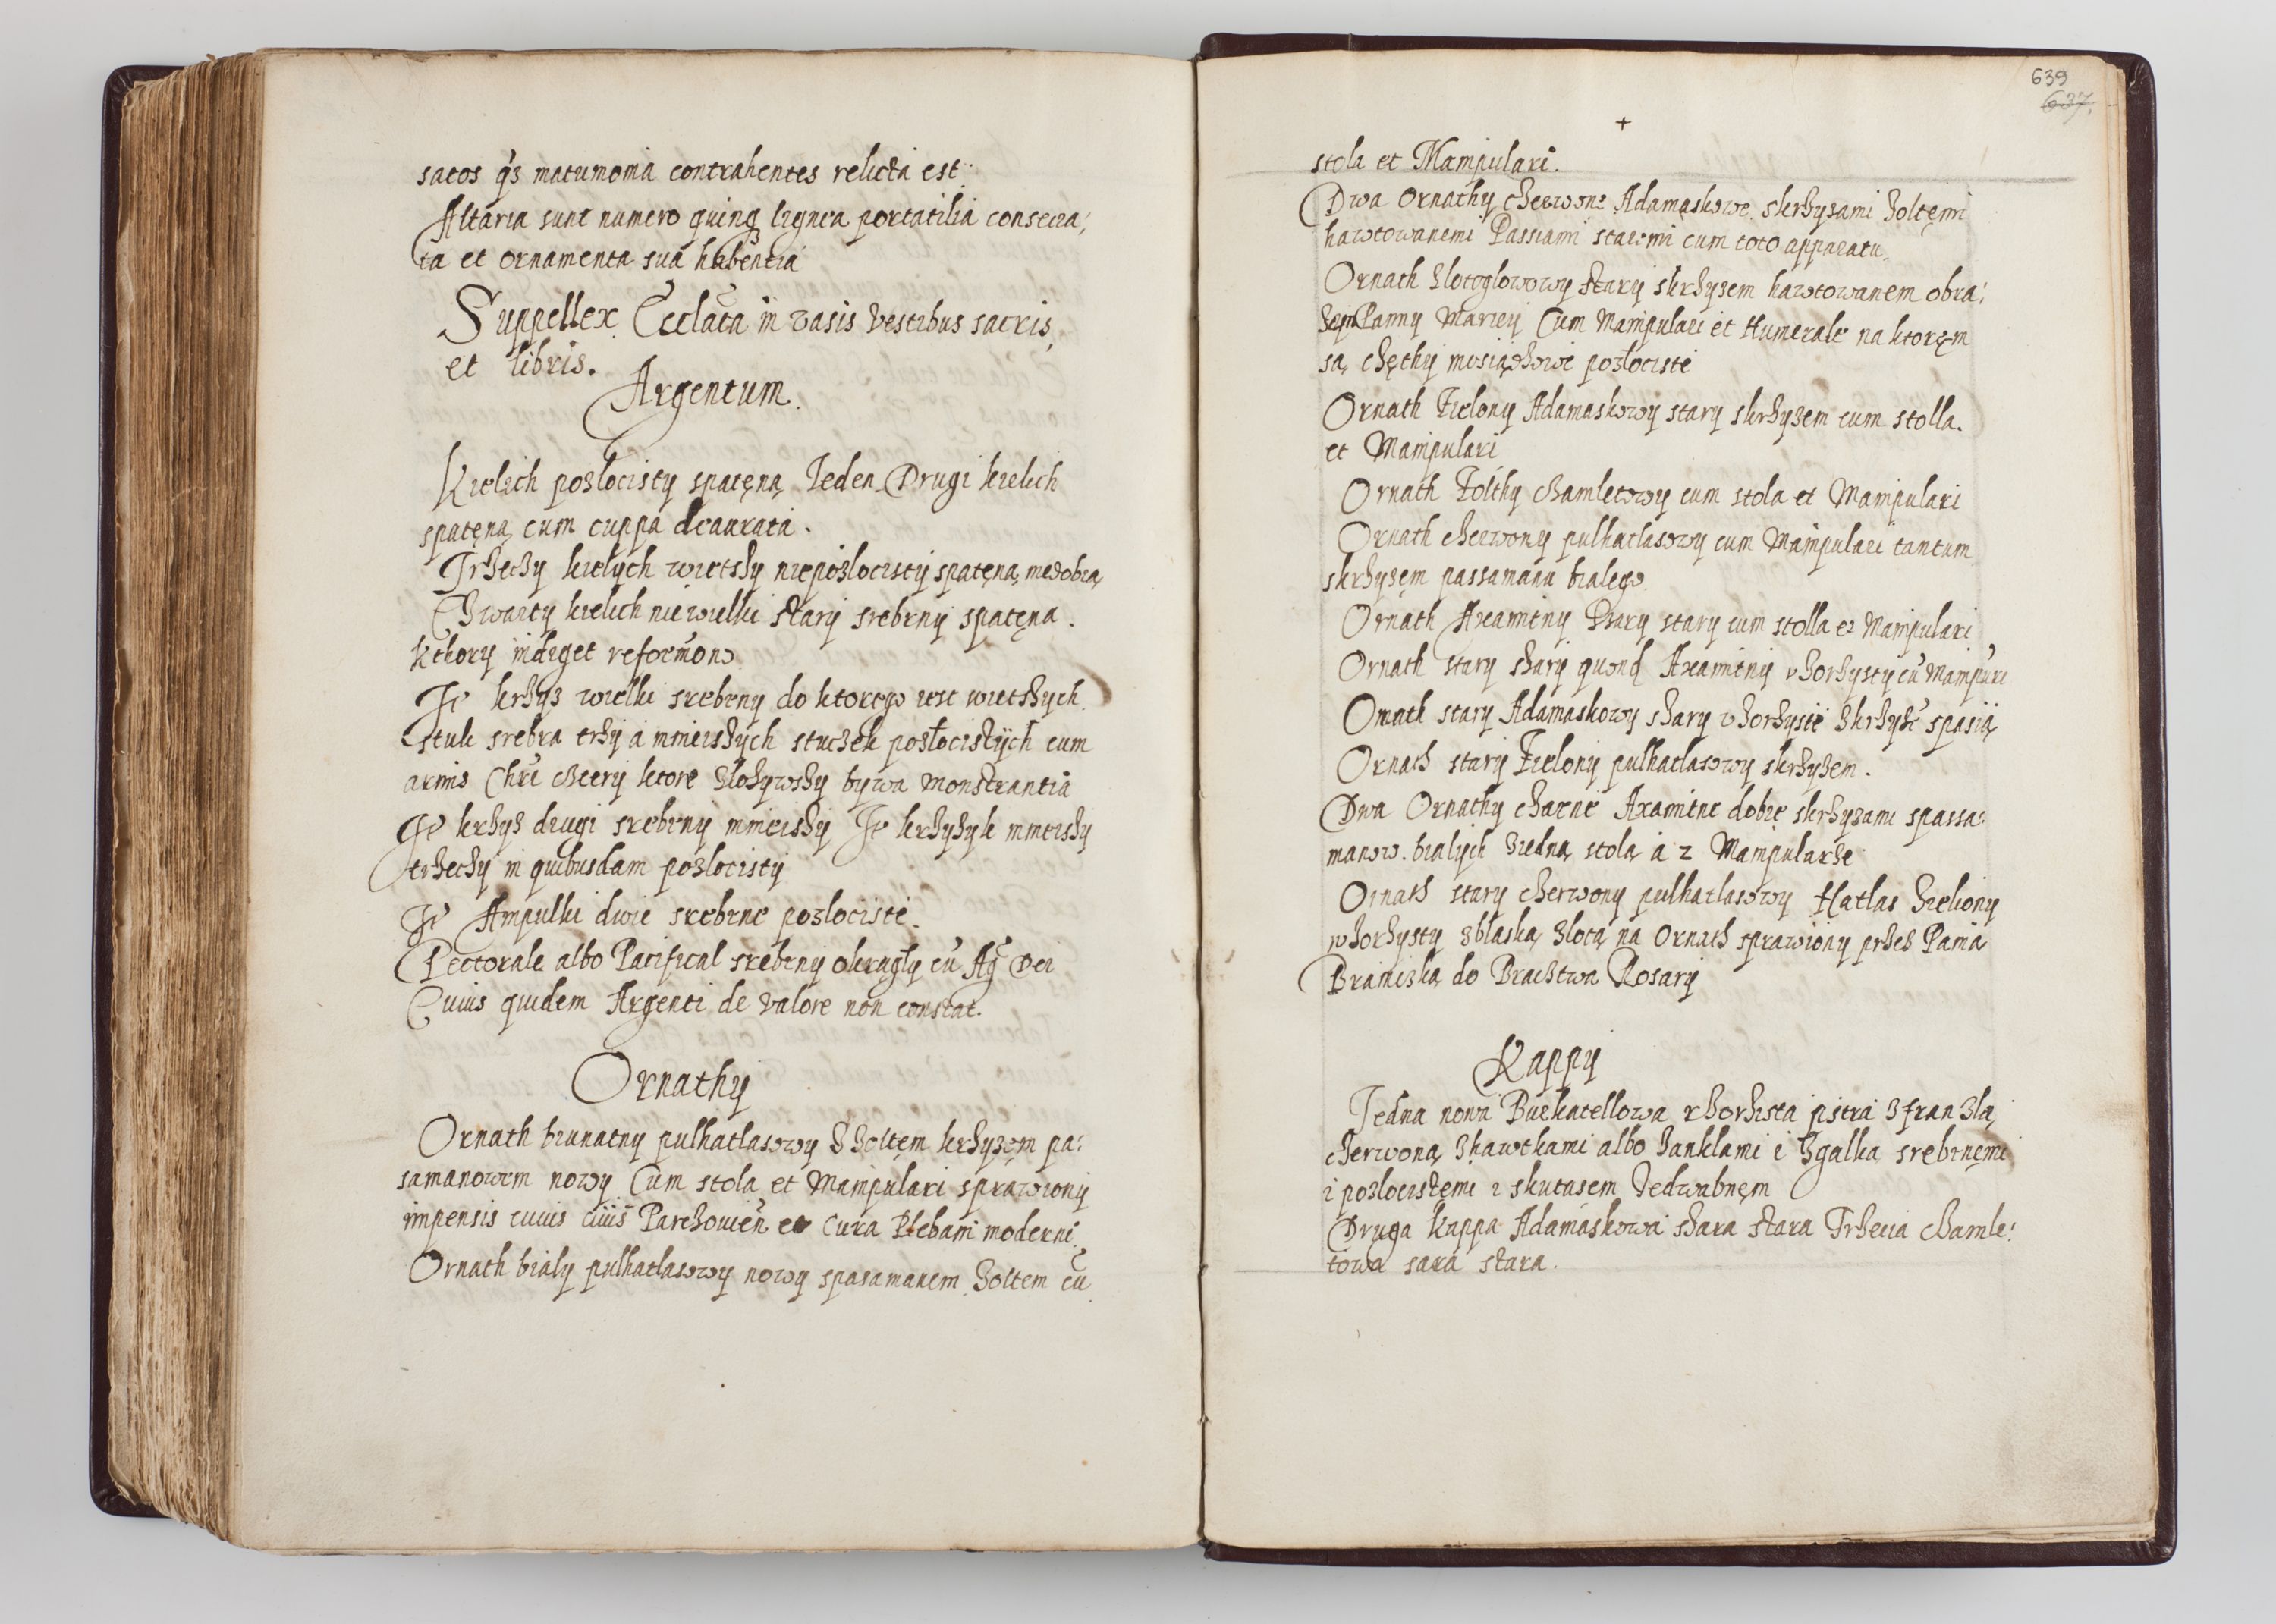 satos q̃s matrimonia contrahentes relicta est
Altaria sunt numero quinq lignea portatilia consecra:
ta et ornamenta sua habentia
Suppellex Eccl̃ata in vasis Vestibus sacris
et libris.
Argentum.
Kielich pozlocisty spatęną Ieden Drugi kielich
spatęną cum cuppa deaurata.
Trzeczy kielych wietszy niepozlocisty spatęną miedzbią
Czwarty kielich niewielki stary srebrny spatęna.
kthory indiget reformõne
It krzyz wielki srebrny do ktorego iest wietszych
stuk srebra trzy a mnieiszych stuczek pozłocistych cum
armis Chri cztery ktore złozywszy bywa monstrantia
It krzyz drugi srebrny mnieiszy It krzyzyk mnieiszy
trzeczy in quibusdam pozlocisty
It Ampulki dwie srebrne pozlociste.
Pectorale albo Pacifical srebrny okragly cũ Ag̃ Dei
Cuius quidem Argenti de valore non constat.
Ornathy
Ornath brunatny pulhatlasowy z zoltęm krzyzęm pa:
samanowem nowy Cum stola et Manipulari sprawiony
impensis cuius ciuis Parczouien̄ et cura Plebani moderni
Ornath bialy pulhatlasowy nowy spasamanem zoltem cũ
639
637.
+
stola et Manipulari.
Dwa Ornathy czerwone Adamaskowe skrzyzami zoltęmi
hawtowanemi Passiami staremi cum toto apparatu
Ornath zlotoglowowy stary skrzyzem hawtowanem obra:
zem Panny Mariey Cum Manipulari et Humerale na ktoręm
są chęthy mosiądzowe pozłociste
Ornath Zielony Adamaskowy stary skrzyzem cum stolla.
et Manipulari
Ornath Zolthy czamletowy cum stola et Manipulari
Ornath czerwony pulhatlasowy cum Manipulari tantum
skrzyzęm passamanu bialego
Ornath Axamitny stary cum stolla et Manipulari
Ornath stary szary quond Axamitny wzorzysty cũ Manipuri
Ornath stary Adamaskowy szary wzorzysti zkrzyzē spasią
Ornath stary Zielony pulhatlasowy skrzyzem.
Dwa Ornathy czarne Axamitne dobre skrzyzami spassa:
manow. bialych ziedną stolą a 2 Manipularze
Ornath stary czerwony pulhatlasowy Hatlas zieliony
wzorzysty zblaską zlotą na Ornath sprawiony przez Panią
Braniczką do Bractwa Rosary
Kappy
Jedna nowa Burkatellowa wzorzista pstra z franzlą
czerwoną zhawtkami albo hanklami i zgalka srebrnęmi
i pozlocistęmi i skutasem Jedwabnęm
Druga kappa Adamaskowa szara stara Trzecia czamle:
towa sara stara.